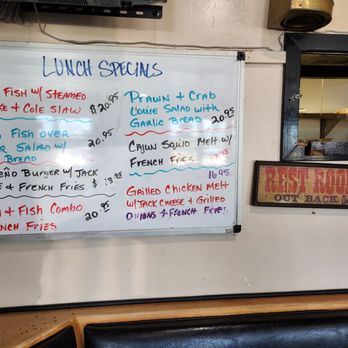 LUNCH SPECIALS
FISH W/ STEAMED
+ COLE SLAW $20.95
FISH OVER
SALAD W/
BREAD 20.95
BURGER W/ JACK
E & FRENCH FRIES $
+ FISH COMBO
FRIES 20.95
PRAWN & CRAB
LOUIE SALAD WITH
GARLIC BREAD 20.95
CAJUN SQUID MELT W/
FRENCH FRIES
16.95
GRILLED CHICKEN MELT
W/ JACK CHEESE & GRILLED
ONIONS & FRENCH FRIES
REST ROOM
OUT BACK